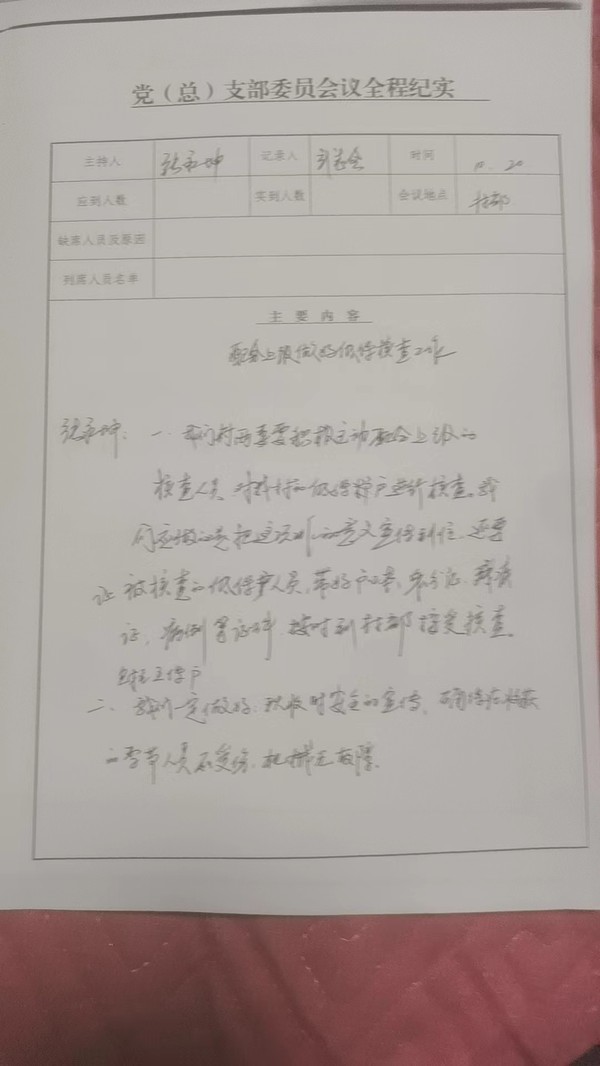 党（总）支部委员会议全程纪实
主持人 张永坤 记录人 时间 10.20
应到人数 实到人数 会议地点 村部
缺席人员及原因
列席人员名单
主要内容
配合上级做好低保核查工作
张永坤：一、我们村两委要积极主动配合上级的
核查人员，对我村的低保户进行核查。我
们应做的是把这项的意义宣传到位，还要
让被核查的低保户人员，带好户口本、身份证、残疾
证、病例等证件，按时到村部接受核查。
包括五保户
二、我们一定做好：秋收时安全的宣传，确保在收获
的季节人员不受伤，机械无故障。